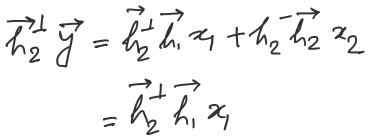 $\vec{h}_2^{\perp} \vec{y} = \vec{h}_2^{\perp} \vec{h}_1 x_1 + h_2^{-} \vec{h}_2 x_2$
$= \vec{h}_2^{\perp} \vec{h}_1 x_1$